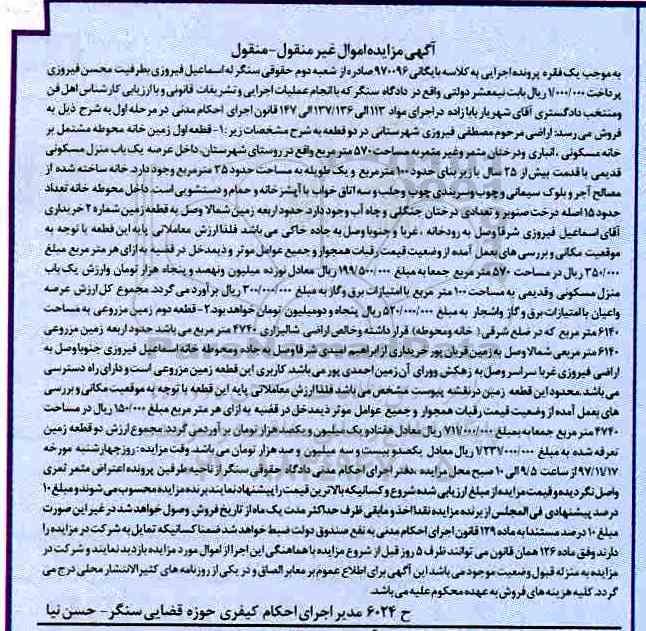 آگهی مزایده اموال غیر منقول-منقول
به موجب یک فقره پرونده اجرایی به کلاسه بایگانی ۹۷۰۰۹۶ صادره از شعبه دوم حقوقی سنگر له اسماعیل فیروزی بطرفیت محسن فیروزی
پرداخت ۱/۰۰۰/۰۰۰ ریال بابت نیمعشر دولتی واقع در دادگاه سنگر که با انجام عملیات اجرایی و تشریفات قانونی و با ارزیابی کارشناس اهل فن
ومنتخب دادگستری آقای شهریار بابا زاده در اجرای مواد ۱۱۳ الی ۱۳۷/۱۳۶ الی ۱۴۷ قانون اجرای احکام مدنی در مرحله اول به شرح ذیل به
فروش می رسد: اراضی مرحوم مصطفی فیروزی شهرستانی در دو قطعه به شرح مشخصات زیر: ۱- قطعه اول زمین خانه محوطه مشتمل بر
خانه مسکونی ، انباری ودرختان مثمر وغیر مثمر به مساحت ۵۷۰ متر مربع واقع در روستای شهرستان، داخل عرصه یک باب منزل مسکونی
قدیمی با قدمت بیش از ۲۵ سال با زیر بنای حدود ۱۰۰ مترمربع و یک طویله به مساحت حدود ۳۵ مترمربع وجود دارد. خانه ساخته شده از
مصالح آجر و بلوک سیمانی و چوب وسربندی چوب وحلب و سه اتاق خواب با آشپزخانه و حمام و دستشویی است. داخل محوطه خانه تعداد
حدود ۱۵ اصله درخت صنوبر و تعدادی درختان جنگلی و چاه آب وجود دارد. حدود اربعه زمین شمالا وصل به قطعه زمین شماره ۲ خریداری
آقای اسماعیل فیروزی شرقا وصل به رودخانه ، غربا و جنوبا وصل به جاده خاکی می باشد. فلذا ارزش معاملاتی پایه این قطعه با توجه به
موقعیت مکانی و بررسی های بعمل آمده از وضعیت قیمت رقبات همجوار و جمیع عوامل موثر و ذیمدخل در قضیه به ازای هر متر مربع مبلغ
۳۵۰/۰۰۰ ریال در مساحت ۵۷۰ متر مربع جمعا به مبلغ ۱۹۹/۵۰۰/۰۰۰ ریال معادل نوزده میلیون ونهصد و پنجاه هزار تومان وارزش یک باب
منزل مسکونی وقدیمی به مساحت ۱۰۰ متر مربع با امتیازات برق و گاز به مبلغ ۳۰۰/۰۰۰/۰۰۰ ریال برآورد می گردد. مجموع کل ارزش عرصه
واعیان با امتیازات برق و گاز واشجار به مبلغ ۵۲۰/۰۰۰/۰۰۰ ریال پنجاه و دومیلیون تومان خواهد بود. ۲- قطعه دوم زمین مزروعی به مساحت
۶۱۴۰ متر مربع که در ضلع شرقی ( خانه ومحوطه) قرار داشته وخالص اراضی شالیزاری ۴۷۴۰ متر مربع می باشد حدود اربعه زمین مزروعی
۶۱۴۰ متر مربعی شمالا وصل به زمین قربان پور خریداری از ابراهیم امیدی شرقا وصل به جاده ومحوطه خانه اسماعیل فیروزی جنوبا وصل به
اراضی فیروزی غربا سراسر وصل به زهکش وورای آن زمین احمدی پور می باشد. کاربری این قطعه زمین مزروعی است و دارای راه دسترسی
می باشد. محدود این قطعه زمین در نقشه پیوست مشخص می باشد فلذا ارزش معاملاتی پایه این قطعه با توجه به موقعیت مکانی و بررسی
های بعمل آمده از وضعیت قیمت رقبات همجوار و جمیع عوامل موثر ذیمدخل در قضیه به ازای هر متر مربع مبلغ ۱۵۰/۰۰۰ ریال در مساحت
۴۷۴۰ متر مربع جمعا به مبلغ ۷۱۱/۰۰۰/۰۰۰ ریال معادل هفتاد و یک میلیون و یکصد هزار تومان بر آورد می گردد. مجموع ارزش دو قطعه زمین
تعرفه شده به مبلغ ۱/۲۳۱/۰۰۰/۰۰۰ ریال معادل یکصدو بیست و سه میلیون و صد هزار تومان می باشد. وقت مزایده: روز چهارشنبه مورخه
۹۷/۱۱/۱۷ از ساعت ۹/۵ الی ۱۰ صبح محل مزایده ، دفتر اجرای احکام مدنی دادگاه حقوقی سنگر از ناحیه طرفین پرونده اعتراض مثمر ثمری
واصل نگردیده و قیمت مزایده از مبلغ ارزیابی شده شروع و کسانیکه بالاترین قیمت را پیشنهاد نمایند برنده مزایده محسوب می شوند و مبلغ ۱۰
درصد پیشنهادی فی المجلس از برنده مزایده نقدا اخذ و مابقی ظرف حداکثر مدت یک ماه از تاریخ فروش وصول خواهد شد در غیر این صورت
مبلغ ۱۰ درصد مستندا به ماده ۱۲۹ قانون اجرای احکام مدنی به نفع صندوق دولت ضبط خواهد شد ضمنا کسانیکه تمایل به شرکت در مزایده را
دارند وفق ماده ۱۲۶ همان قانون می توانند ظرف ۵ روز قبل از شروع مزایده با هماهنگی این اجرا از اموال مورد مزایده بازدید نمایند و شرکت در
مزایده به منزله قبول وضعیت موجود می باشد. این آگهی برای اطلاع عموم بر معابر الصاق و در یکی از روزنامه های کثیر الانتشار محلی درج می
گردد. کلیه هزینه های فروش به عهده محکوم علیه می باشد.
ح ۶۰۲۴ مدیر اجرای احکام کیفری حوزه قضایی سنگر- حسن نیا